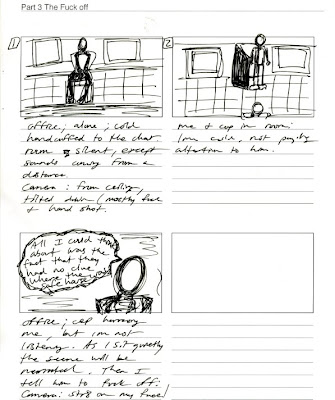 Part 3 The Fuck off
1
2
office; alone; cold
handcuffed to the chair
room silent, except
sounds away from a
distance
Camera: from ceiling,
tilted down / mostly face
& hand shot.
me & cop in room.
Im calm, not paying
attention to him.
All I could think
about was the
fact that they
had no clue
where the
safe
office; cop harrassing
me, but im not
listening. As I sit quietly
the scene will be
narrated. Then I
tell him to fuck off.
Camera: str8 on my face/